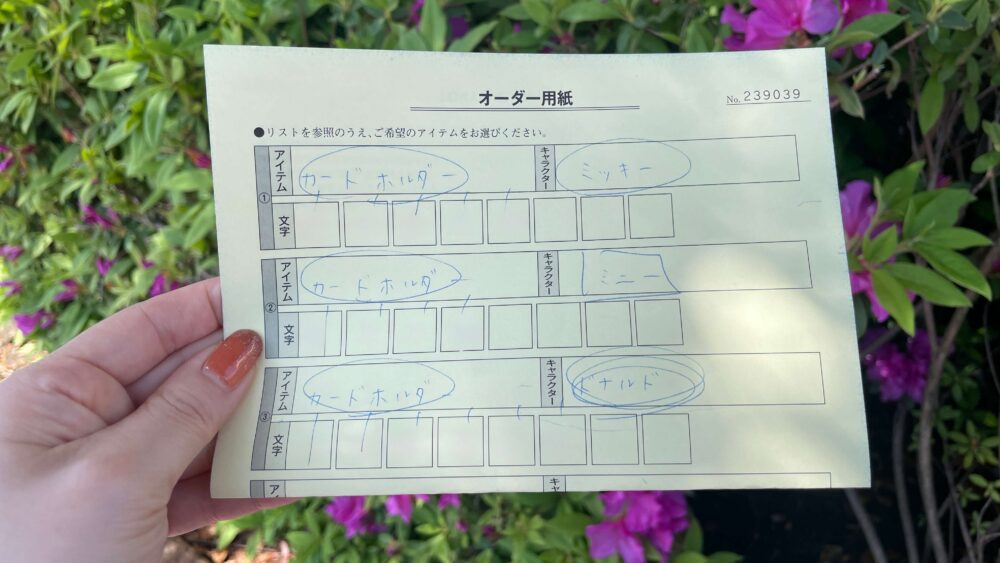 オーダー用紙
No. 239039
●リストを参照のうえ、ご希望のアイテムをお選びください。
① アイテム カードホルダー キャラクター ミッキー
文字
② アイテム カードホルダー キャラクター ミニー
文字
③ アイテム カードホルダー キャラクター ドナルド
文字
ア キャ